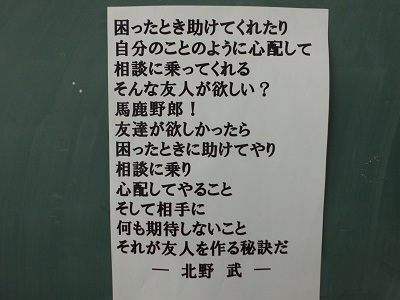 困ったとき助けてくれたり
自分のことのように心配して
相談に乗ってくれる
そんな友人が欲しい？
馬鹿野郎！
友達が欲しかったら
困ったときに助けてやり
相談に乗り
心配してやること
そして相手に
何も期待しないこと
それが友人を作る秘訣だ
― 北野 武 ―